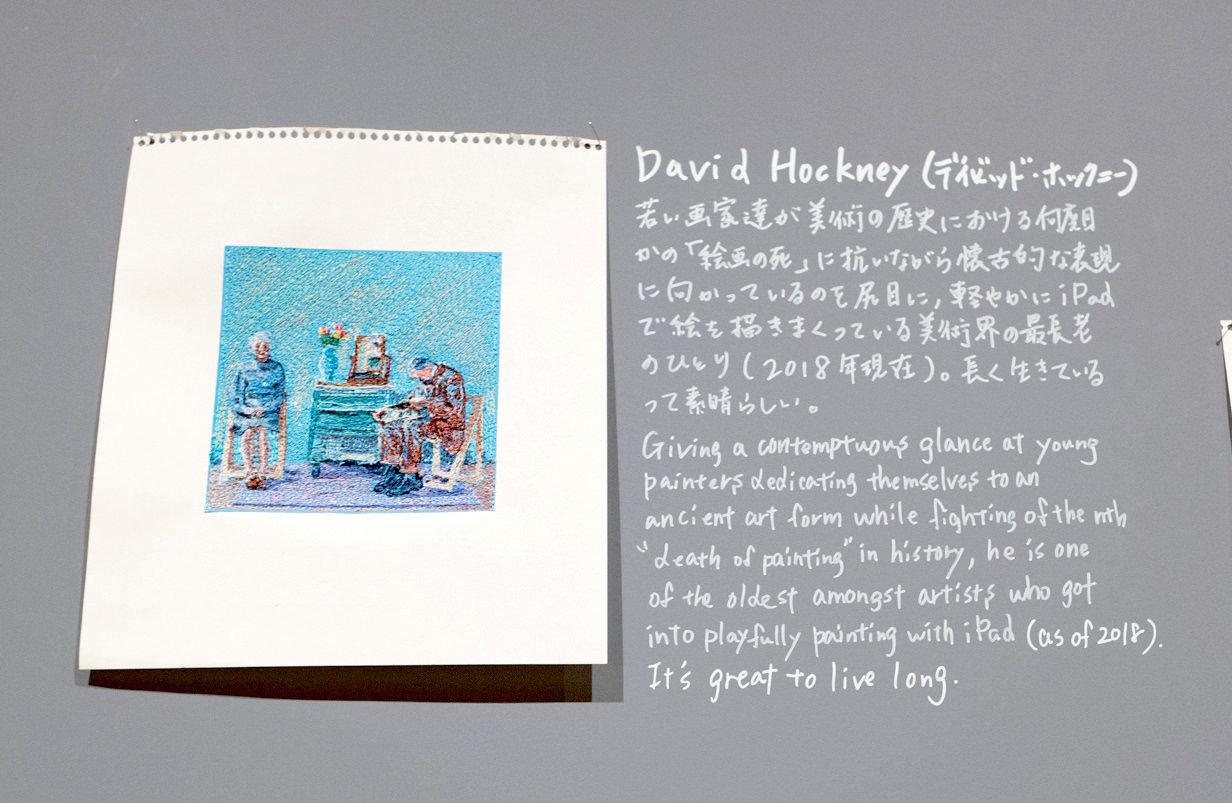 David Hockney (デイビッド・ホックニー)
若い画家達が美術の歴史における何度目
かの「絵画の死」に抗いながら懐古的な表現
に向かっているのを尻目に,軽やかにiPad
で絵を描きまくっている美術界の最長老
のひとり(2018年現在)。長く生きている
って素晴らしい。
Giving a contemptuous glance at young
painters dedicating themselves to an
ancient art form while fighting of the nth
"death of painting" in history, he is one
of the oldest amongst artists who got
into playfully painting with iPad (as of 2018).
It's great to live long.